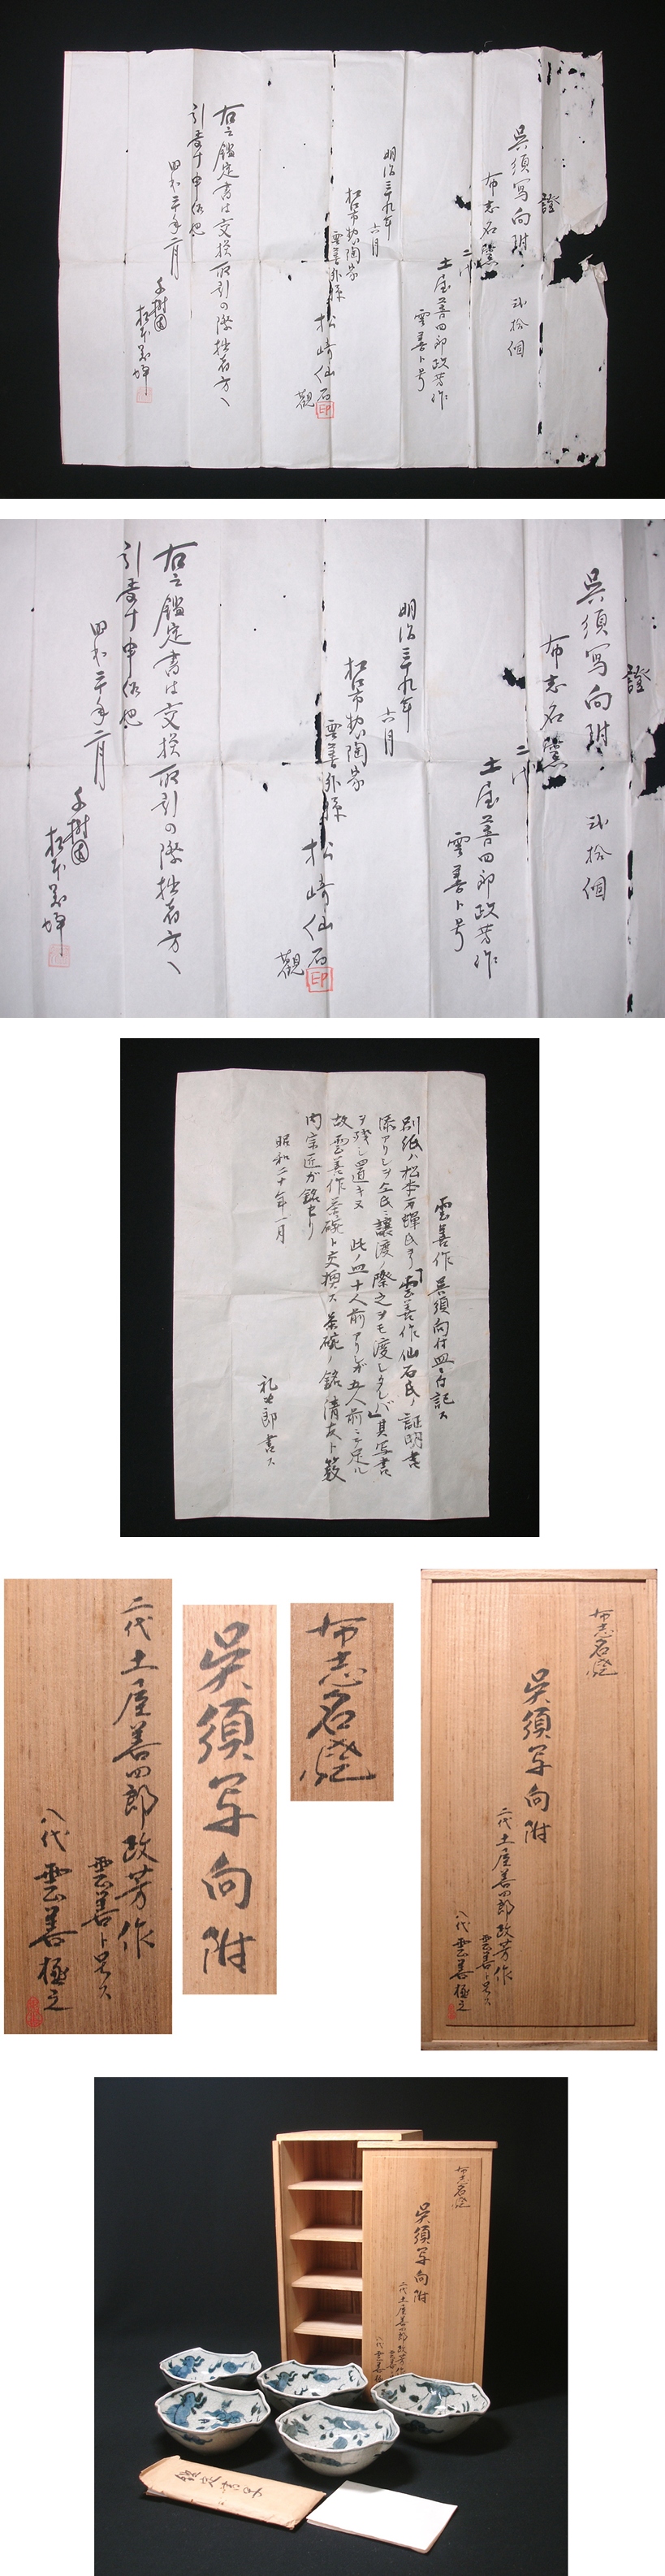 證
呉須寫向附 弐拾個
布志名窯
二代
土屋善四郎政芳作
雲善ト号
明治三十九年
六月
松江市 陶家
雲善外孫
松崎仙石
觀
印
右之鑑定書は交換取引の際拙者方へ
引 申候也
昭和二十年二月
證
呉須寫向附 弐拾個
布志名窯
二代
土屋善四郎政芳作
雲善ト号
明治三十九年
六月
松江市 陶家
雲善外孫
松崎仙石
觀
印
右之鑑定書は交換取引の際拙者方へ
引 申候也
昭和二十年二月
雲善作 呉須向付皿ニ付記ス
別紙ハ松本万蟬氏ヨリ「雲善作仙石氏ノ証明書
添アリシヲ 仝氏ニ譲渡ノ際之ヲモ渡シタレバ」其写書
ヲ残シ置キヌ 此ノ皿十人前アリシガ五人前ニテ足ル
故雲善作茶碗ト交換ス 茶碗ノ銘清友ト薮
内宗匠ガ銘セリ
昭和二十年一月
書ス
二代土屋善四郎政芳作
雲善ト号ス
八代雲善極之
呉須写向附
布志名焼
布志名焼
呉須写向附
二代土屋善四郎政芳作
雲善ト号ス
八代雲善極之
布志名焼
呉須写向附
二代土屋善四郎政芳作
八代雲善
鑑定書写